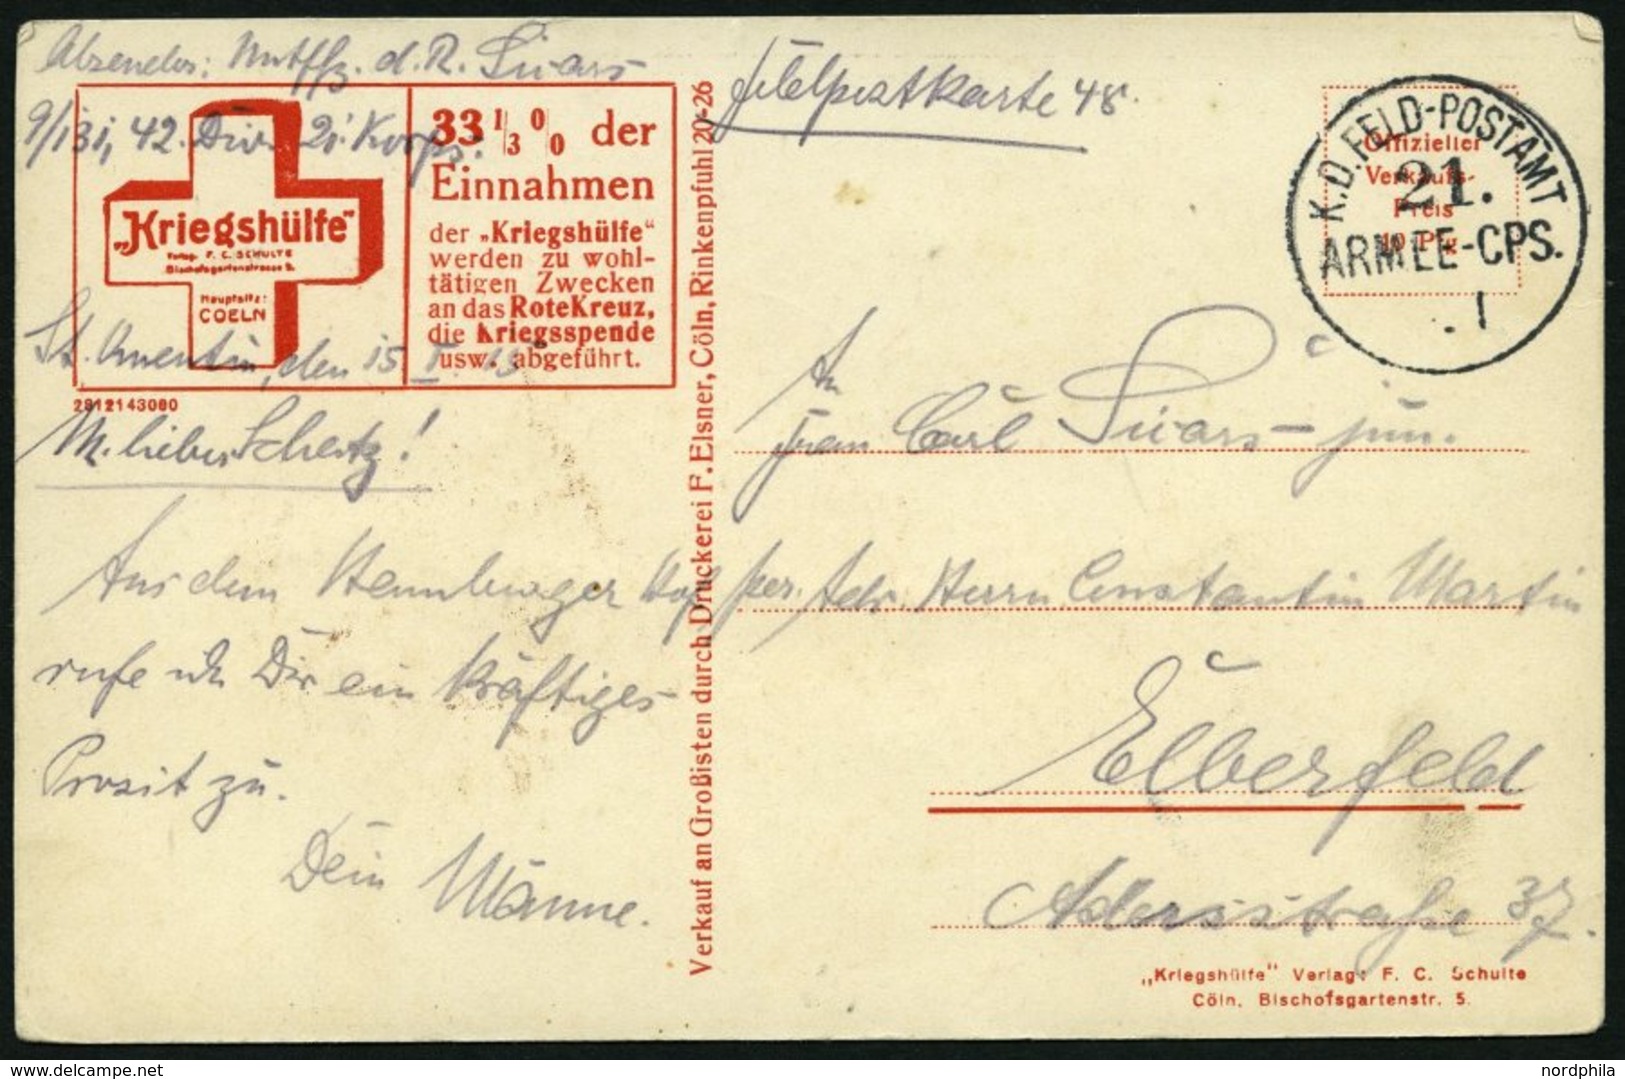 Absender: Untffz. d. R. Suars
9/131, 42. Div. 21. Korps.
Feldpostkarte 48.
„Kriegshülfe“
Verlag: F. C. SCHULTE
Bischofsgartenstrasse 5.
Hauptsitz:
COELN
33 1/3 0/0 der
Einnahmen
der „Kriegshülfe“
werden zu wohl-
tätigen Zwecken
an das Rote Kreuz,
die Kriegsspende
usw. abgeführt.
2812143080
St. Quentin, den 15. I. 15
M. lieber Schatz!
Aus dem Hennburger Hof
rufe ich Dir ein kräftiges
Prosit zu.
Dein Männe.
Verkauf an Großisten durch Druckerei F. Elsner, Cöln, Rinkenpfuhl 20-26
K.D. FELD-POSTAMT
21.
ARMEE-CPS.
Offizieller
Verkaufs-
Preis
10 Pfg.
An
Frau Carl Suars jun.
per. Adr. Herrn Constantin Martin
Elberfeld
Adersstraße 37.
„Kriegshülfe“ Verlag: F. C. Schulte
Cöln, Bischofsgartenstr. 5.
nordphila
ebay.com